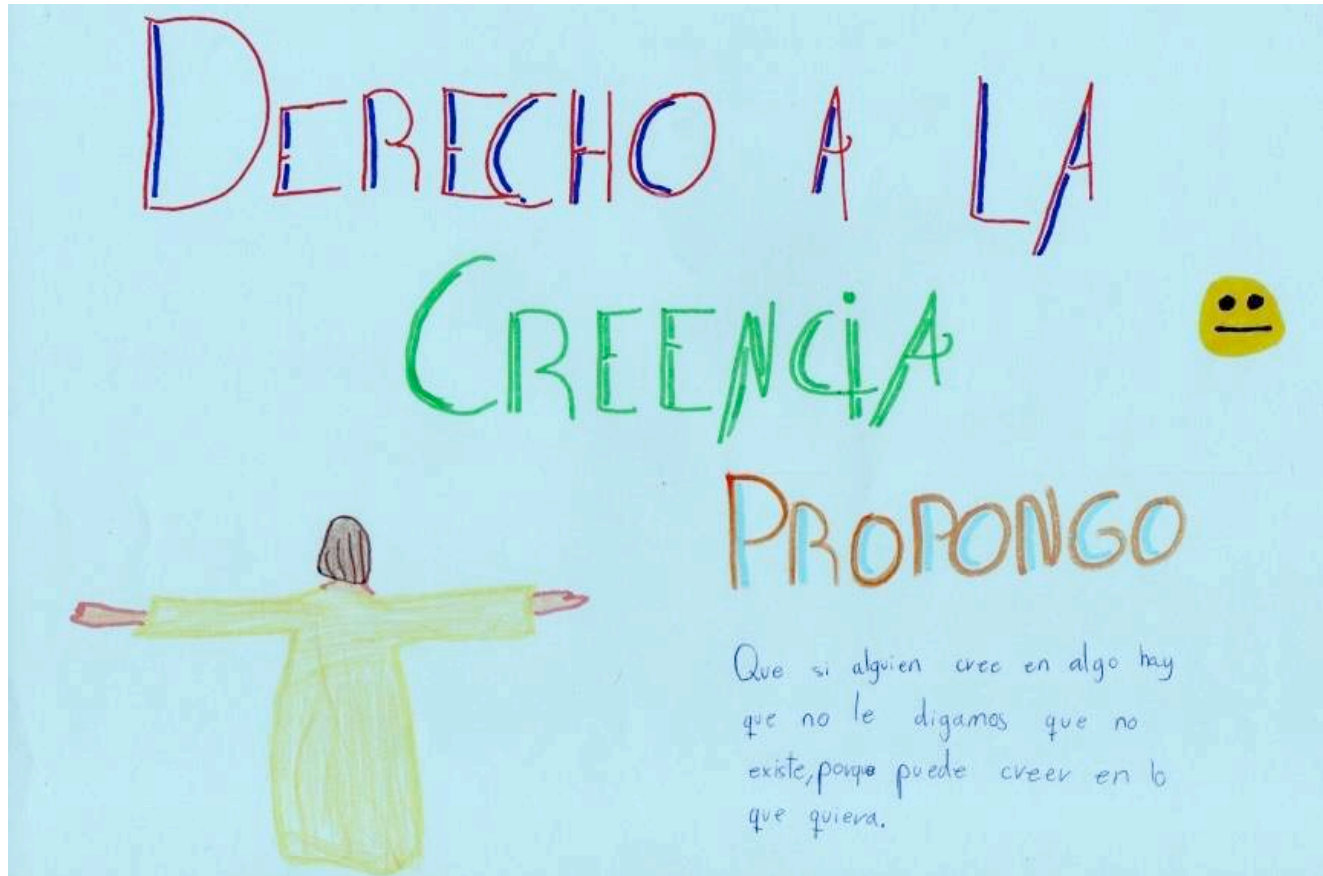 DERECHO A LA
CREENCIA
PROPONGO
Que si alguien cree en algo hay
que no le digamos que no
existe, porque puede creer en lo
que quiera.